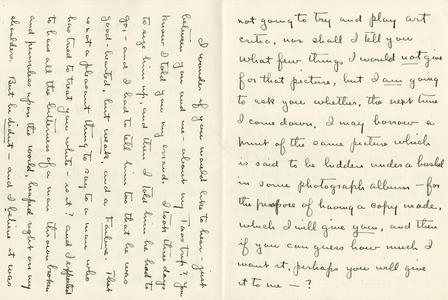 not going to try and play art
critic, nor shall I tell you
what few things I would not give
for that picture, but I am going
to ask you whether, the next time
I come down, I may borrow a
print of the same picture which
is said to be hidden under a bushel
in some photograph albums - for
the purpose of having a copy made,
which I will give you, and then
if you can guess how much I
want it, perhaps you will give
it to me - ?
I wonder if you would like to hear - just
between you and me - about my Taos trip? You
know I told you my errand. I took three days
to size him up, and then I told him he had to
go, - and I had to tell him too that he was
good-hearted, but weak and a failure. That
is not a pleasant thing to say to a man who
has tried to treat you white - is it? and I expected
to have all the bitterness of a man thrown broken
and penniless upon the world, heaped right on my
shoulders. But he didn't - and I believe it was